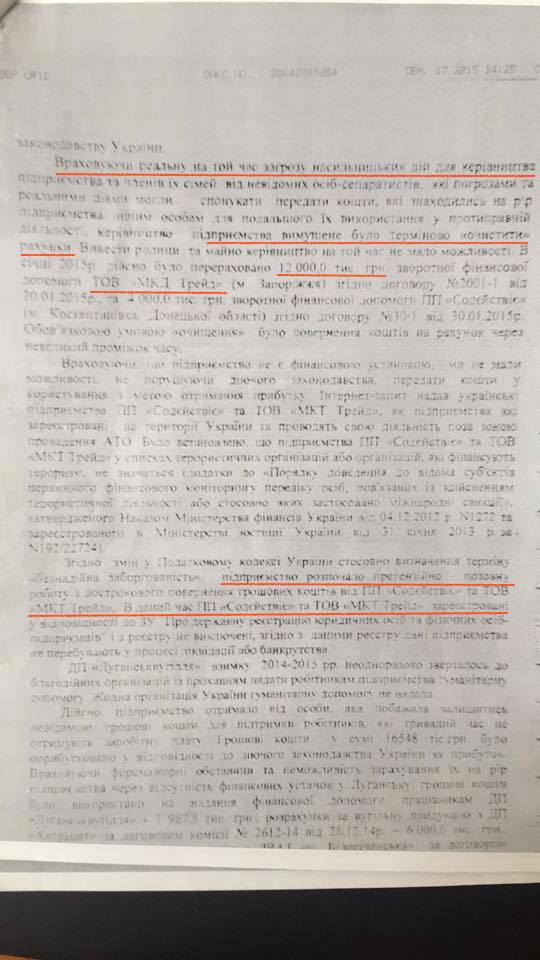 законодавству України.
Враховуючи реальну на той час загрозу насильницьких дій для керівництва
підприємства та членів їх сімей від невідомих осіб-сепаратистів, які погрозами та
реальними діями могли спонукати передати кошти, які знаходились на р/р
підприємства іншим особам для подальшого їх використання у протиправній
діяльності, керівництво підприємства вимушене було терміново «очистити»
рахунки. Вивести родини та майно керівництво на той час не мало можливості. В
січні 2015р. дійсно було перераховано 12 000,0 тис. грн. зворотної фінансової
допомоги ТОВ «МКД Трейд» (м. Запоріжжя) згідно договору №2001-1 від
20.01.2015р., та 4 000,0 тис. грн. зворотної фінансової допомоги ПП «Содействіє»
(м. Костянтинівка, Донецької області) згідно договору №30/1 від 30.01.2015р.
Обов'язковою умовою «очищення» було повернення коштів на рахунок через
невеликий проміжок часу.
Враховуючи, що підприємство не є фінансовою установою, ми не мали
можливість, не порушуючи діючого законодавства, передати кошти у
користування з метою отримання прибутку. Інтернет-запит надав українські
підприємства ПП «Содействіє» та ТОВ «МКТ Трейд», як підприємства які
зареєстровані на території України та проводять свою діяльність поза зоною
проведення АТО. Було встановлено, що підприємства ПП «Содействіє» та ТОВ
«МКТ Трейд» у списках терористичних організацій або організацій, які фінансують
тероризм, не значаться (додатки до «Порядку доведення до відома суб'єктів
первинного фінансового моніторингу переліку осіб, пов'язаних із здійсненням
терористичної діяльності або стосовно яких застосовано міжнародні санкції»,
затвердженого Наказом Міністерства фінансів України від 04.12.2012 р. N1272 та
зареєстрованого в Міністерстві юстиції України від 31 січня 2013 р. за
N192/22724).
Згідно змін у Податковому кодексі України стосовно визначення терміну
«безнадійна заборгованість», підприємство розпочало претензійно - позовну
роботу з дострокового повернення грошових коштів від ПП «Содействіє» та ТОВ
«МКТ Трейд». В даний час ПП «Содействіє» та ТОВ «МКТ Трейд» зареєстровані
у відповідності до ЗУ "Про державну реєстрацію юридичних осіб та фізичних осіб-
підприємців" і з реєстру не виключені, згідно з даними реєстру дані підприємства
не перебувають у процесі ліквідації або банкрутства.
ДП «Луганськвугілля» взимку 2014-2015 рр. неодноразово зверталось до
благодійних організацій із проханням надати робітникам підприємства гуманітарну
допомогу. Жодна організація України гуманітарну допомогу не надала.
Дійсно, підприємство отримало від особи, яка побажала залишитись
невідомою, грошові кошти для підтримки робітників, які тривалий час не
отримують заробітну плату. Грошові кошти у сумі 16548 тис.грн. було
оприбутковано у відповідності до діючого законодавства України як прибуток.
Враховуючи форсмажорні обставини та неможливість зарахування їх на р/р
підприємства через відсутність фінансових установ у Луганську, грошові кошти
було використано на надання фінансової допомоги працівникам ДП
«Луганськвугілля» - 7 987,5 тис. грн., розрахунки за вугільну продукцію з ДП
«Антрацит» за договором комісії № 2612-14 від 26.12.14р. – 6 000,0 тис. грн.,
за договором